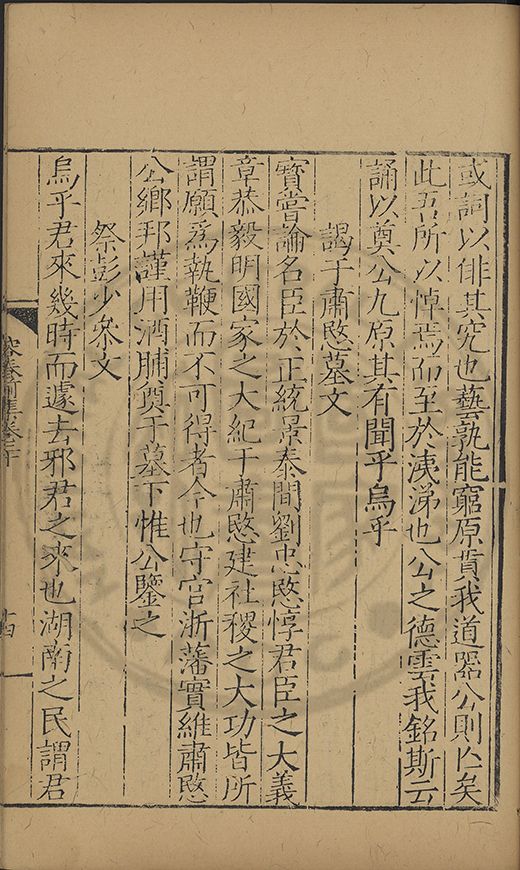 或詞以俳其究也藝孰能窮原賁我道器公則亾矣
此吾所以悼焉而至於洟涕也公之德雲我銘斯云
誦以奠公九原其有聞乎烏乎
謁于肅愍墓文
寶嘗論名臣於正統景泰間劉忠愍惇君臣之大義
章恭毅明國家之大紀于肅愍建社稷之大功皆所
謂願爲執鞭而不可得者今也守官浙藩實維肅愍
公鄉邦謹用酒脯奠于墓下惟公鑒之
祭彭少叅文
烏乎君來幾時而遽去邪君之來也湖南之民謂君
容春前集卷二十
十四